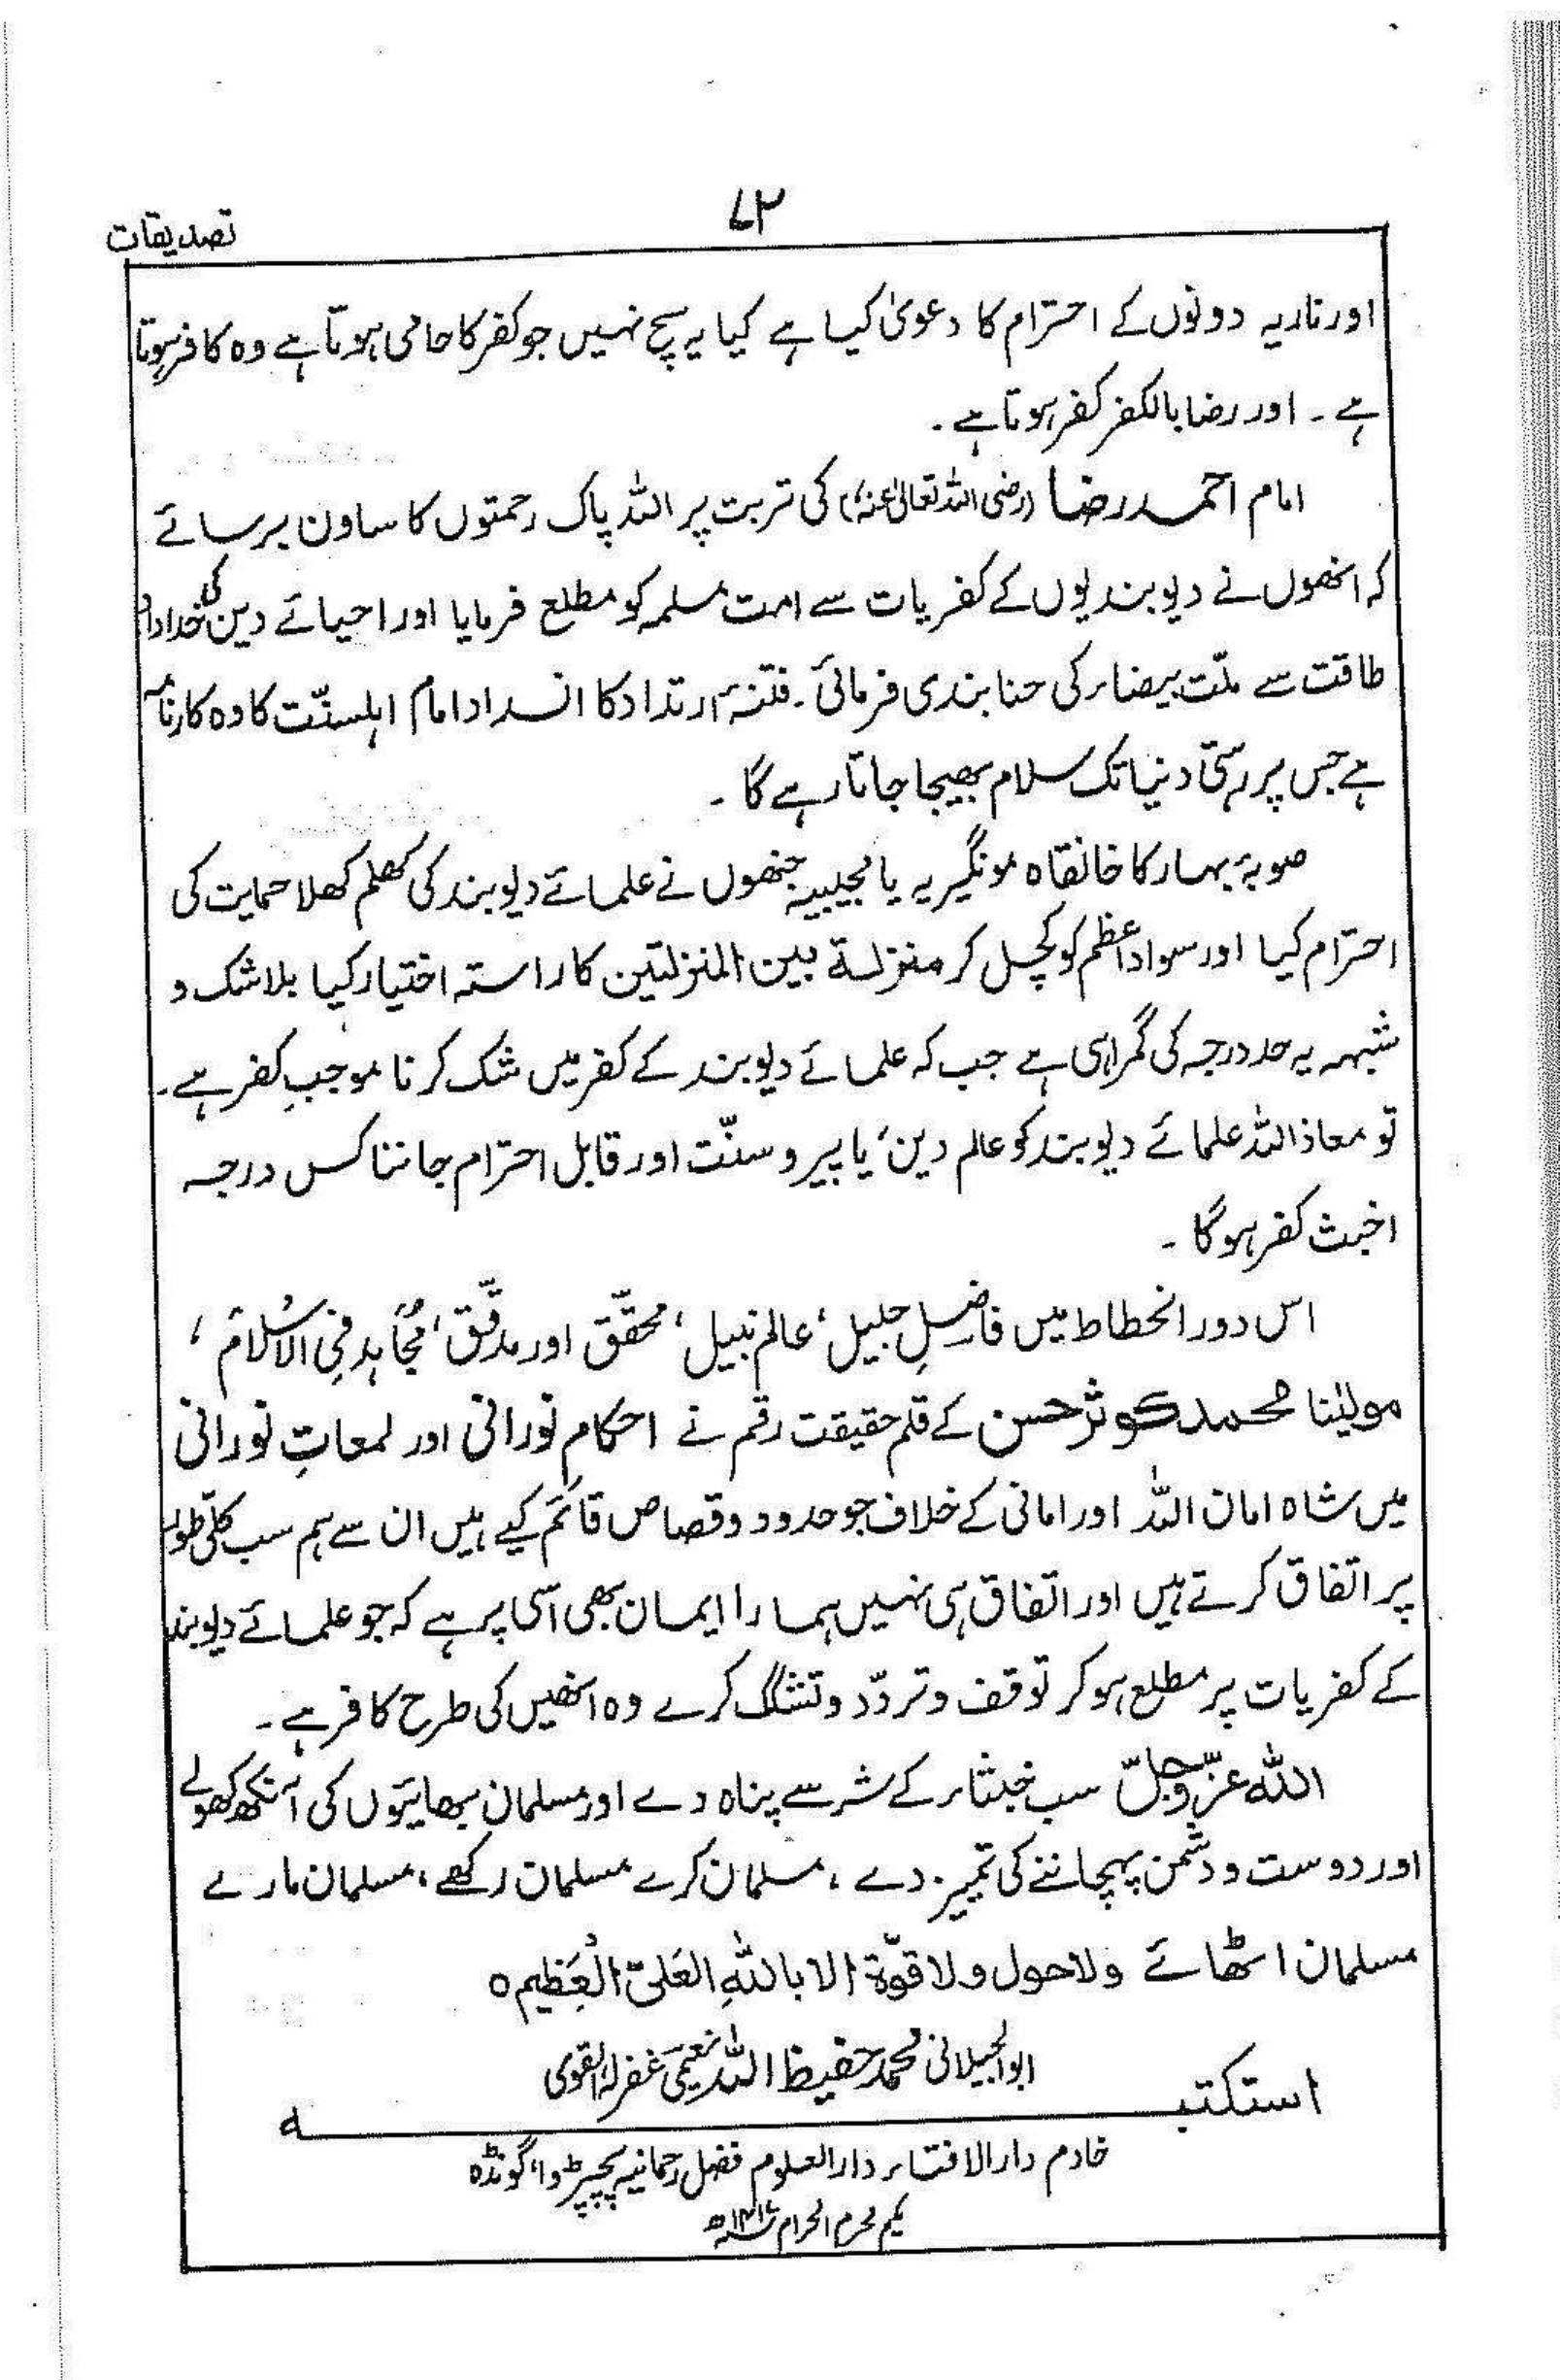 ۷۲
تصدیقات
اور ناریہ دونوں کے احترام کا دعویٰ کیا ہے کیا یہ سچ نہیں جو کفر کا حامی ہوتا ہے وہ کافر ہوتا
ہے ۔ اور رضا بالکفر کفر ہوتا ہے ۔
امام احمد رضا (رضی اللہ تعالیٰ عنہ) کی تربت پر اللہ پاک رحمتوں کا ساون برسائے
کہ انھوں نے دیوبندیوں کے کفریات سے امت مسلمہ کو مطلع فرمایا اور احیائے دین کی خداداد
طاقت سے ملّت بیضاء کی حنا بندی فرمائی ۔ فتنۂ ارتداد کا انسداد امام اہلسنّت کا وہ کارنامہ
ہے جس پر رہتی دنیا تک سلام بھیجا جاتا رہے گا ۔
صوبۂ بہار کا خانقاہ مونگیریہ یا مجیبیہ جنھوں نے علمائے دیوبند کی کھلم کھلا حمایت کی
احترام کیا اور سواد اعظم کو کچل کر منزلة بین المنزلتین کا راستہ اختیار کیا بلاشک و
شبہہ یہ حد درجہ کی گمراہی ہے جب کہ علمائے دیوبند کے کفر میں شک کرنا موجبِ کفر ہے ۔
تو معاذ اللہ علمائے دیوبند کو عالم دین، یا پیرو سنّت اور قابل احترام جاننا کس درجہ
اخبث کفر ہوگا ۔
اس دور انحطاط میں فاضلِ جلیل، عالم نبیل، محقّق اور مدقّق، مُجَاہد فِی الاسْلَام،
مولینا محمد کوثر حسن کے قلم حقیقت رقم نے احکام نورانی اور لمعاتِ نورانی
میں شاہ امان اللہ اور امانی کے خلاف جو حدود و قصاص قائم کیے ہیں ان سے ہم سب کلّی طور
پر اتفاق کرتے ہیں اور اتفاق ہی نہیں ہمارا ایمان بھی اسی پر ہے کہ جو علمائے دیوبند
کے کفریات پر مطلع ہو کر توقف و تردّد و تشکک کرے وہ انھیں کی طرح کافر ہے ۔
اللہ عزّ وجلّ سب خبثاء کے شر سے پناہ دے اور مسلمان بھائیوں کی آنکھ کھولے
اور دوست و دشمن پہچاننے کی تمیز دے ، مسلمان کرے مسلمان رکھے ، مسلمان مارے
مسلمان اٹھائے ولا حول ولا قوّة الا باللهِ العَلیّ الْعَظِیم ٥
ابوالجیلانی محمد حفیظ اللہ نعیمی غفرلہ القوی
استکتبہ
خادم دار الافتاء دارالعلوم فضل رحمانیہ پچپڑوا، گونڈہ
یکم محرم الحرام